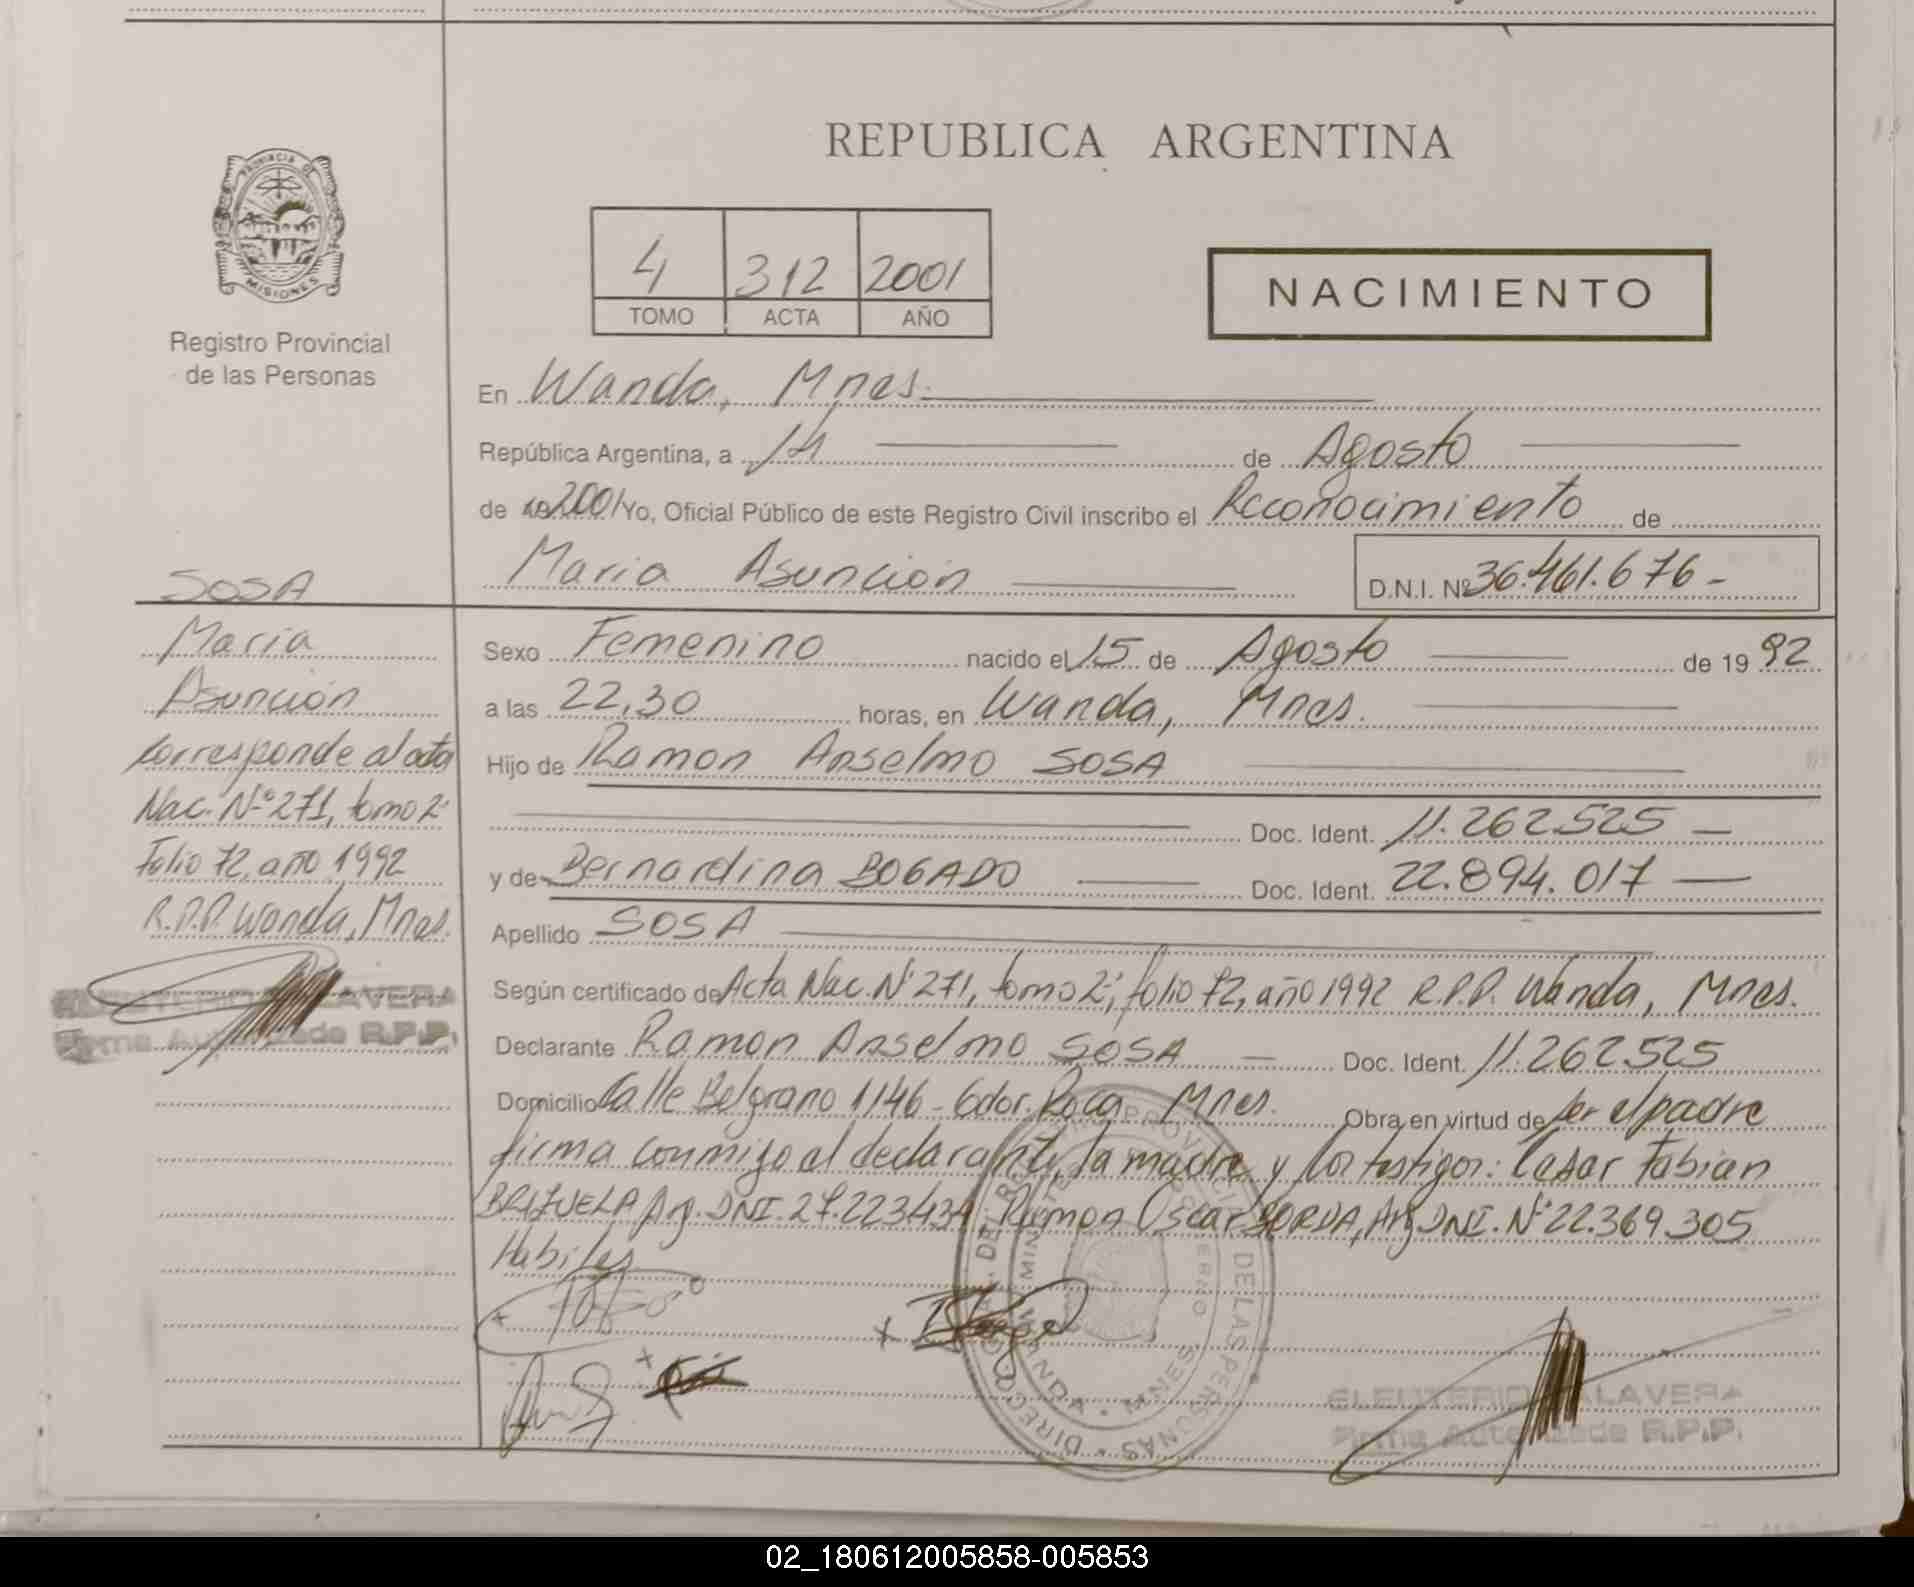 REPUBLICA ARGENTINA
PROVINCIA DE
MISIONES
Registro Provincial
de las Personas
4 312 2001
TOMO ACTA AÑO
NACIMIENTO
En Wanda, Mnes.
República Argentina, a 14 de Agosto
de 19 2001 Yo, Oficial Público de este Registro Civil inscribo el Reconocimiento de
Maria Asunción D.N.I. Nº 36.461.676-
SOSA
Maria
Asunción
Corresponde al acta
Nac. Nº 271, tomo 2º
Folio 72, año 1992
R.P.P. Wanda, Mnes.
ELEUTERIO TALAVERA
Firma Autorizada R.P.P.
Sexo Femenino nacido el 15 de Agosto de 19 92
a las 22,30 horas, en Wanda, Mnes.
Hijo de Ramon Anselmo SOSA
Doc. Ident. 11.262.525 —
y de Bernardina BOGADO Doc. Ident. 22.894.017 —
Apellido SOSA
Según certificado de Acta Nac. Nº 271, tomo 2º, folio 72, año 1992 R.P.P. Wanda, Mnes.
Declarante Ramon Anselmo SOSA — Doc. Ident. 11.262.525
Domicilio Calle Belgrano 1146 - Gdor. Roca Mnes. Obra en virtud de ser el padre
firma conmigo el declarante, la madre y los testigos: Cesar Fabian
BRIZUELA Arg. DNI. 27.223.434 Ramon Oscar BORDA, Arg DNI. Nº 22.369.305
Habiles
DIRECCION GRAL. DEL REGISTRO PROVINCIAL DE LAS PERSONAS
MINISTERIO DE GOBIERNO
WANDA - MNES.
ELEUTERIO TALAVERA
Firma Autorizada R.P.P.
02_180612005858-005853